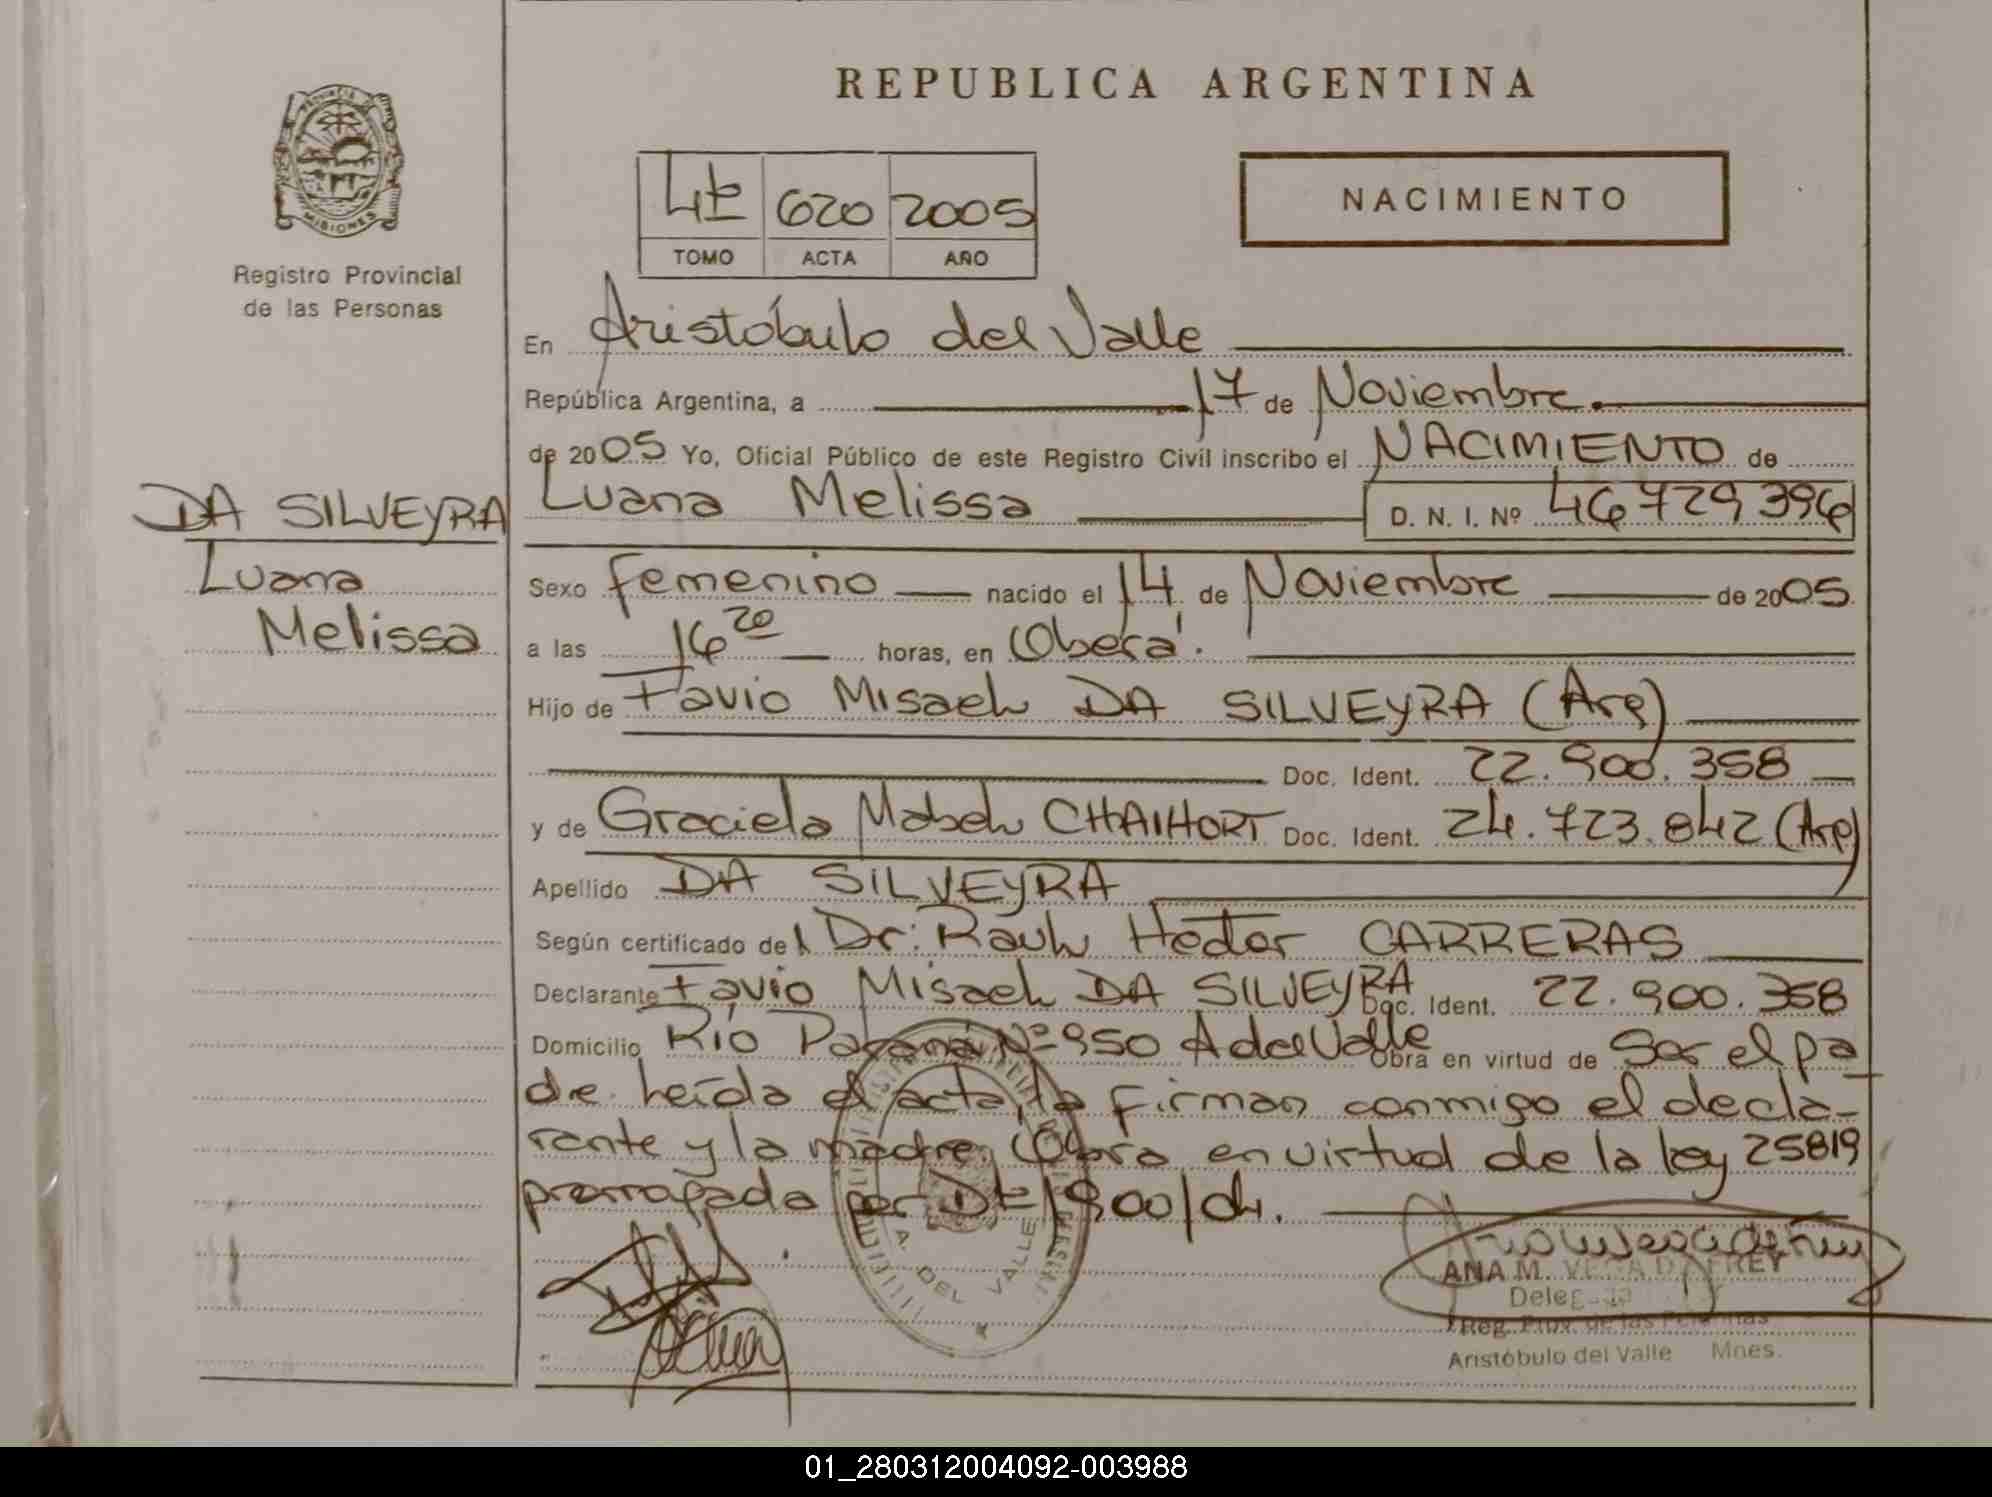 REPUBLICA ARGENTINA
PROVINCIA DE
MISIONES
Registro Provincial
de las Personas
4to 620 2005
TOMO ACTA AÑO
NACIMIENTO
En Aristóbulo del Valle
República Argentina, a 17 de Noviembre.
de 2005 Yo, Oficial Público de este Registro Civil inscribo el NACIMIENTO de
DA SILVEYRA
Luana
Melissa
Luana Melissa D. N. I. Nº 46 729 396
Sexo femenino nacido el 14 de Noviembre de 2005
a las 16 20 horas, en Oberá.
Hijo de Favio Misael DA SILVEYRA (Arg)
Doc. Ident. 22.900.358
y de Graciela Mabel CHAIHORT Doc. Ident. 24.723.842 (Arg)
Apellido DA SILVEYRA
Según certificado del Dr: Raul Hector CARRERAS
Declarante Favio Misael DA SILVEYRA Doc. Ident. 22.900.358
Domicilio Río Paraná Nº 950 A del Valle Obra en virtud de Ser el pa
dre. Leída el acta, la firman conmigo el decla-
rante y la madre. Obra en virtud de la ley 25819
prorrogada por Dto/900/04.
A. DEL VALLE
ANA M. VEGA DE FREY
Reg. Prov. de las Personas
Aristóbulo del Valle Mnes.
01_280312004092-003988